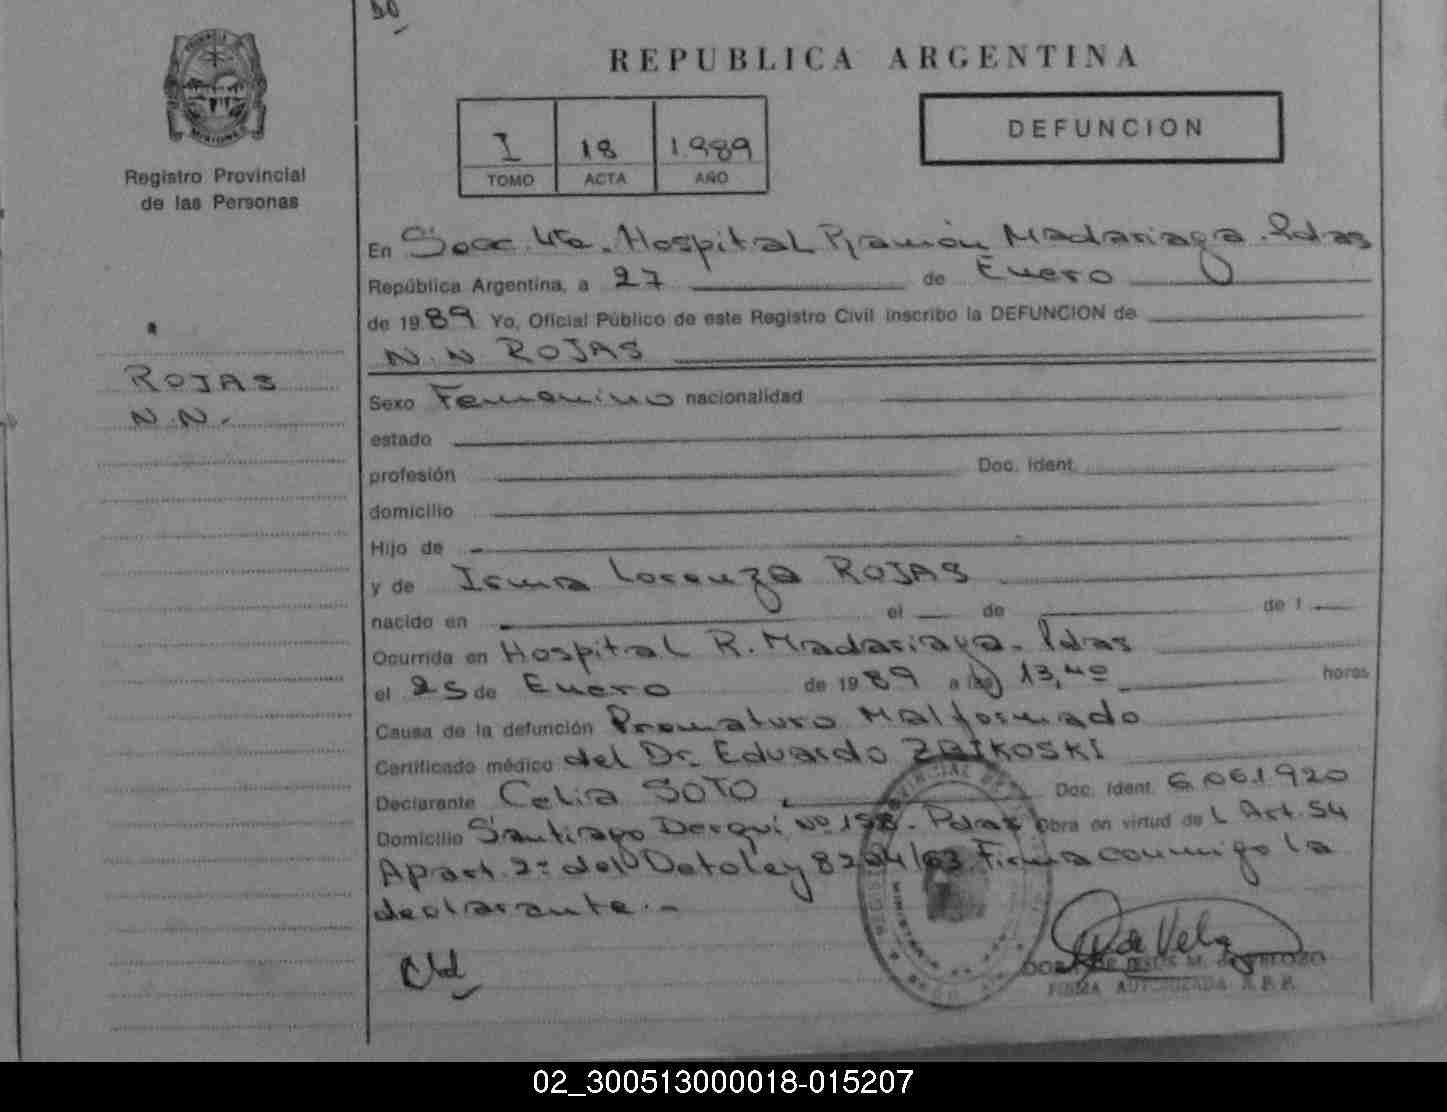 REPUBLICA ARGENTINA
I 18 1.989
TOMO ACTA AÑO
DEFUNCION
Registro Provincial
de las Personas
ROJAS
N.N.-
En Secc. 4ta. Hospital Ramón Madariaga. Pdas
República Argentina, a 27 de Enero
de 1989 Yo, Oficial Público de este Registro Civil inscribo la DEFUNCION de
N.N ROJAS
Sexo Femenino nacionalidad
estado
profesión Doc. Ident.
domicilio
Hijo de
y de Irma Lorenza ROJAS
nacido en el de de 1
Ocurrida en Hospital R. Madariaga. Pdas
el 25 de Enero de 1989 a las 13,40 horas
Causa de la defunción Prematuro Malformado
Certificado médico del Dr. Eduardo ZBIKOSKI
Declarante Celia SOTO Doc. Ident. 6.061.920
Domicilio Santiago Derqui Nº 158.- Pdas Obra en virtud del Art. 54
Apart. 2º del Dto ley 8204/63. Firma conmigo la
declarante.-
FIRMA AUTORIZADA R.P.P.
02_300513000018-015207